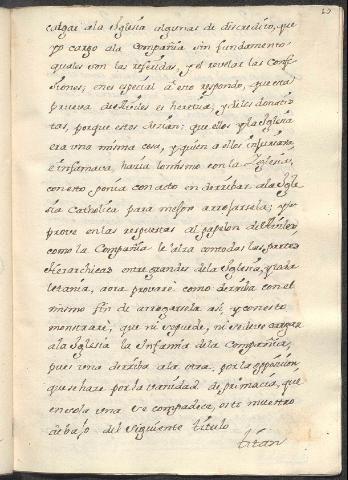 cargar ala Iglesia algunas de discredito, que
yo cargo ala Compañia sin fundamento
quales son las referidas, y el revelar las Confe
siones; en especial à esto respondo, que esta
prueva de es heretica, y de los donatis
tas, porque estos decian: que ellos y la Iglesia
era una misma cosa, y quien a ellos injuriava,
e infamava, hacia lo mismo con la Iglesia,
con esto ponia conacto in derribar ala Igle
sia Catholica para mejor arrogarsela; yo
prove en las respuestas al papelon del
como la Compañia se alza con todas las partes
Hierarchicas entre grandes dela Iglesia, y toda
letania, aora provarè como derriba con el
mismo fin de arrogarsela asi, y con esto
monstrarè, que ni se puede, ni se deve cargar
ala Iglesia la Infamia dela Compañia,
pues una derriba ala otra, por la opposicion
que se haze por la vanidad de primacia, que
en sola una se compadece, esto muestro
debajo del siguiente titulo
titan